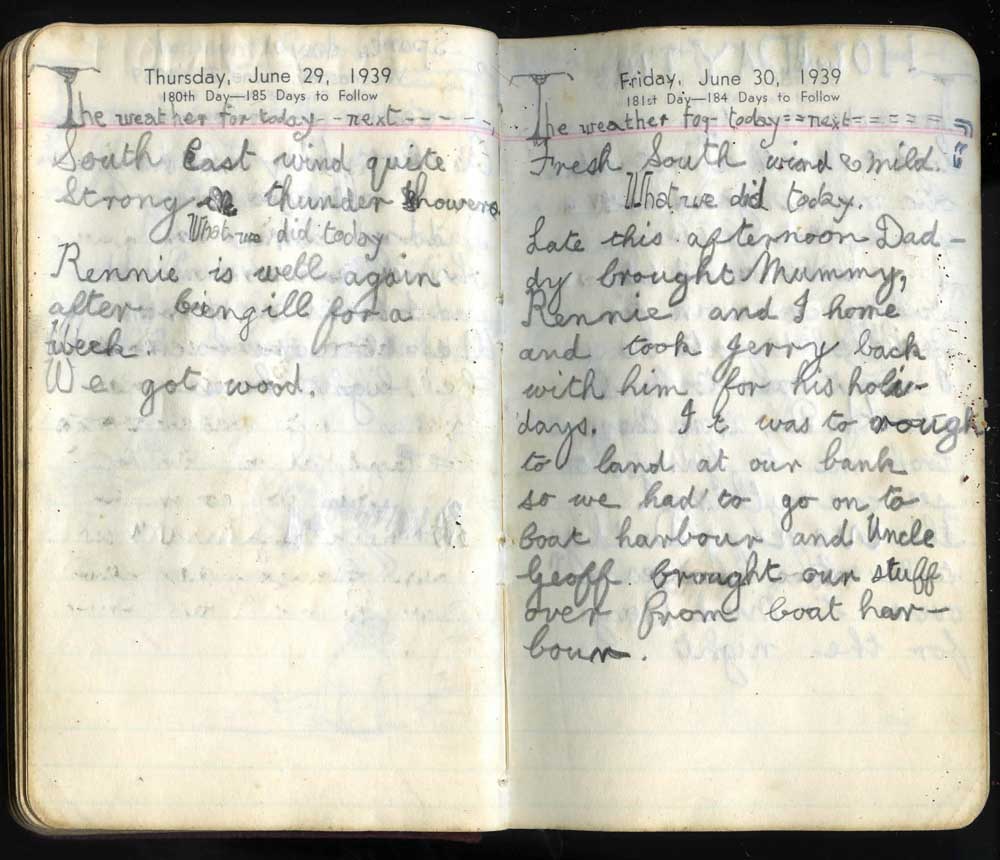 Thursday, June 29, 1939
180th Day—185 Days to Follow
The weather for today--next-----
South East wind quite
Strong thunder showers
What we did today
Rennie is well again
after being ill for a
Week.
We got wood.
Friday, June 30, 1939
181st Day—184 Days to Follow
The weather fog-today==next=====
Fresh South wind & mild.
What we did today.
Late this afternoon Dad-
dy brought Mummy,
Rennie and I home
and took Jerry back
with him for his holi-
days. It was to rough
to land at our bank
so we had to go on to
boat harbour and Uncle
Geoff. brought our stuff
over from boat har-
bour.